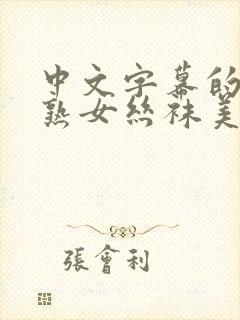 中文字幕的
熟女絲袜美
張會利